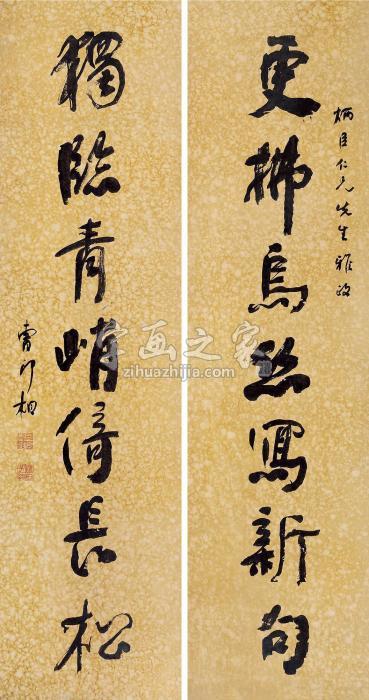 柄臣仁兄先生雅政
更拂烏絲寫新句
獨臨青峭倚長松
字画之家
zihuazhijia.com